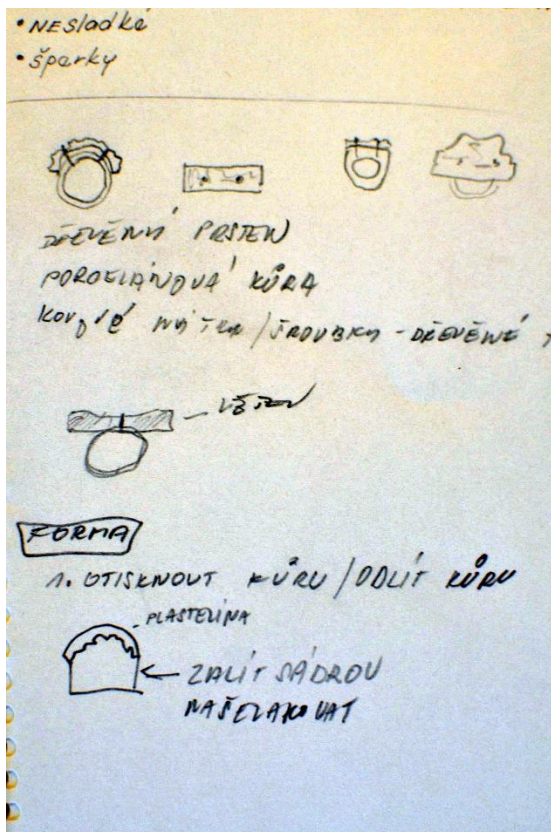 • NESladké
• šparky
DŘEVĚNÝ PRSTEN
PORCELÁNOVÁ KŮRA
KOVOVÉ NÝTKY / ŠROUBKY - DŘEVĚNÉ
FORMA
1. OTISKNOUT KŮRU / ODLÍT KŮRU
PLASTELÍNA
ZALÍT SÁDROU
NAŠELAKOVAT